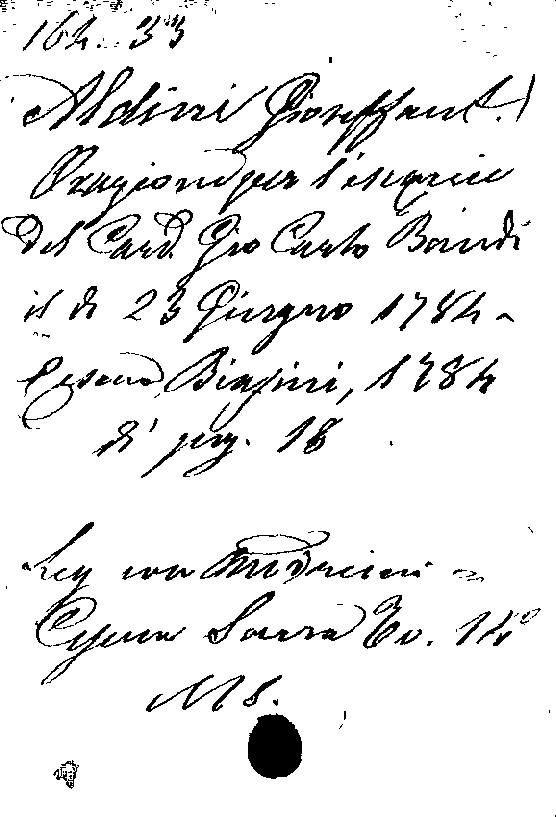 164. 33
Aldini Gioseffant.
Orazione per l'esequie
del Card. Gio Carlo Bandi
il dì 23 Giugno 1784 -
Cesena, Biasini, 1784
di pag. 18
Leg con
Cesena Sacra To. 14°
MS.